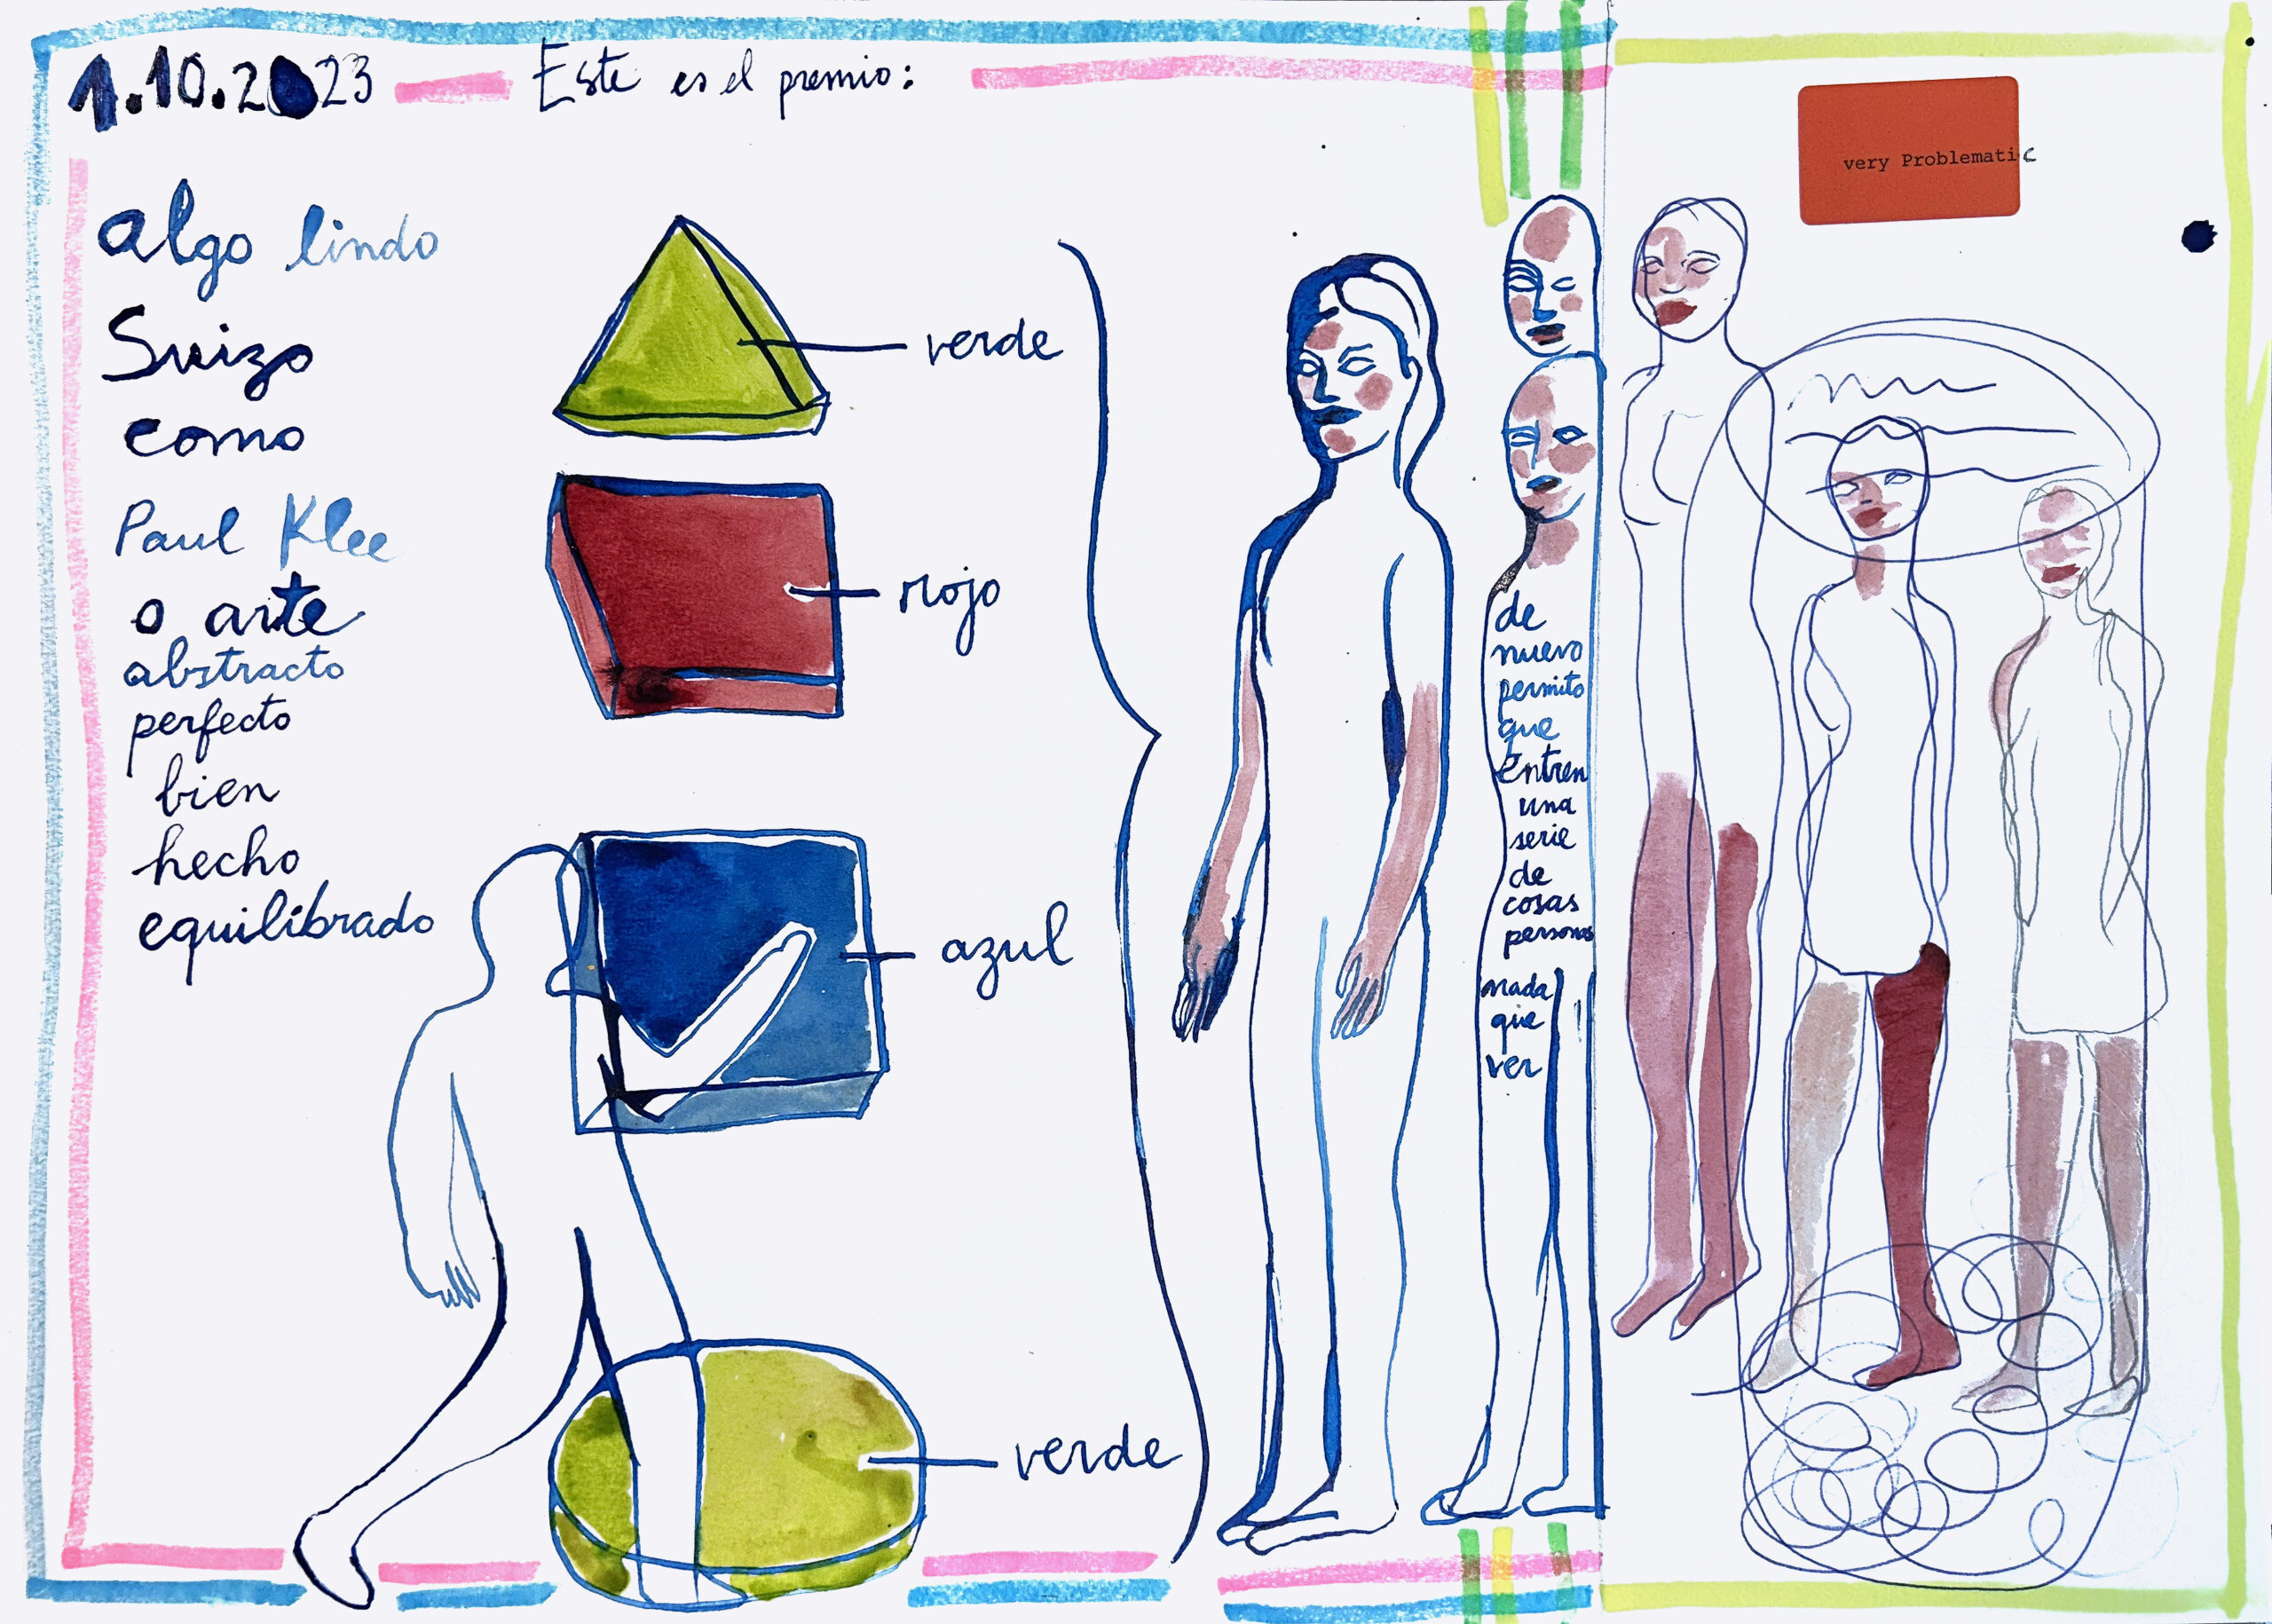 1.10.2023
Este es el premio:
algo lindo
Suizo
como
Paul Klee
o arte
abstracto
perfecto
bien
hecho
equilibrado
verde
rojo
azul
verde
de
nuevo
permito
que
entren
una
serie
de
cosas
personas
nada
que
ver
very Problematic